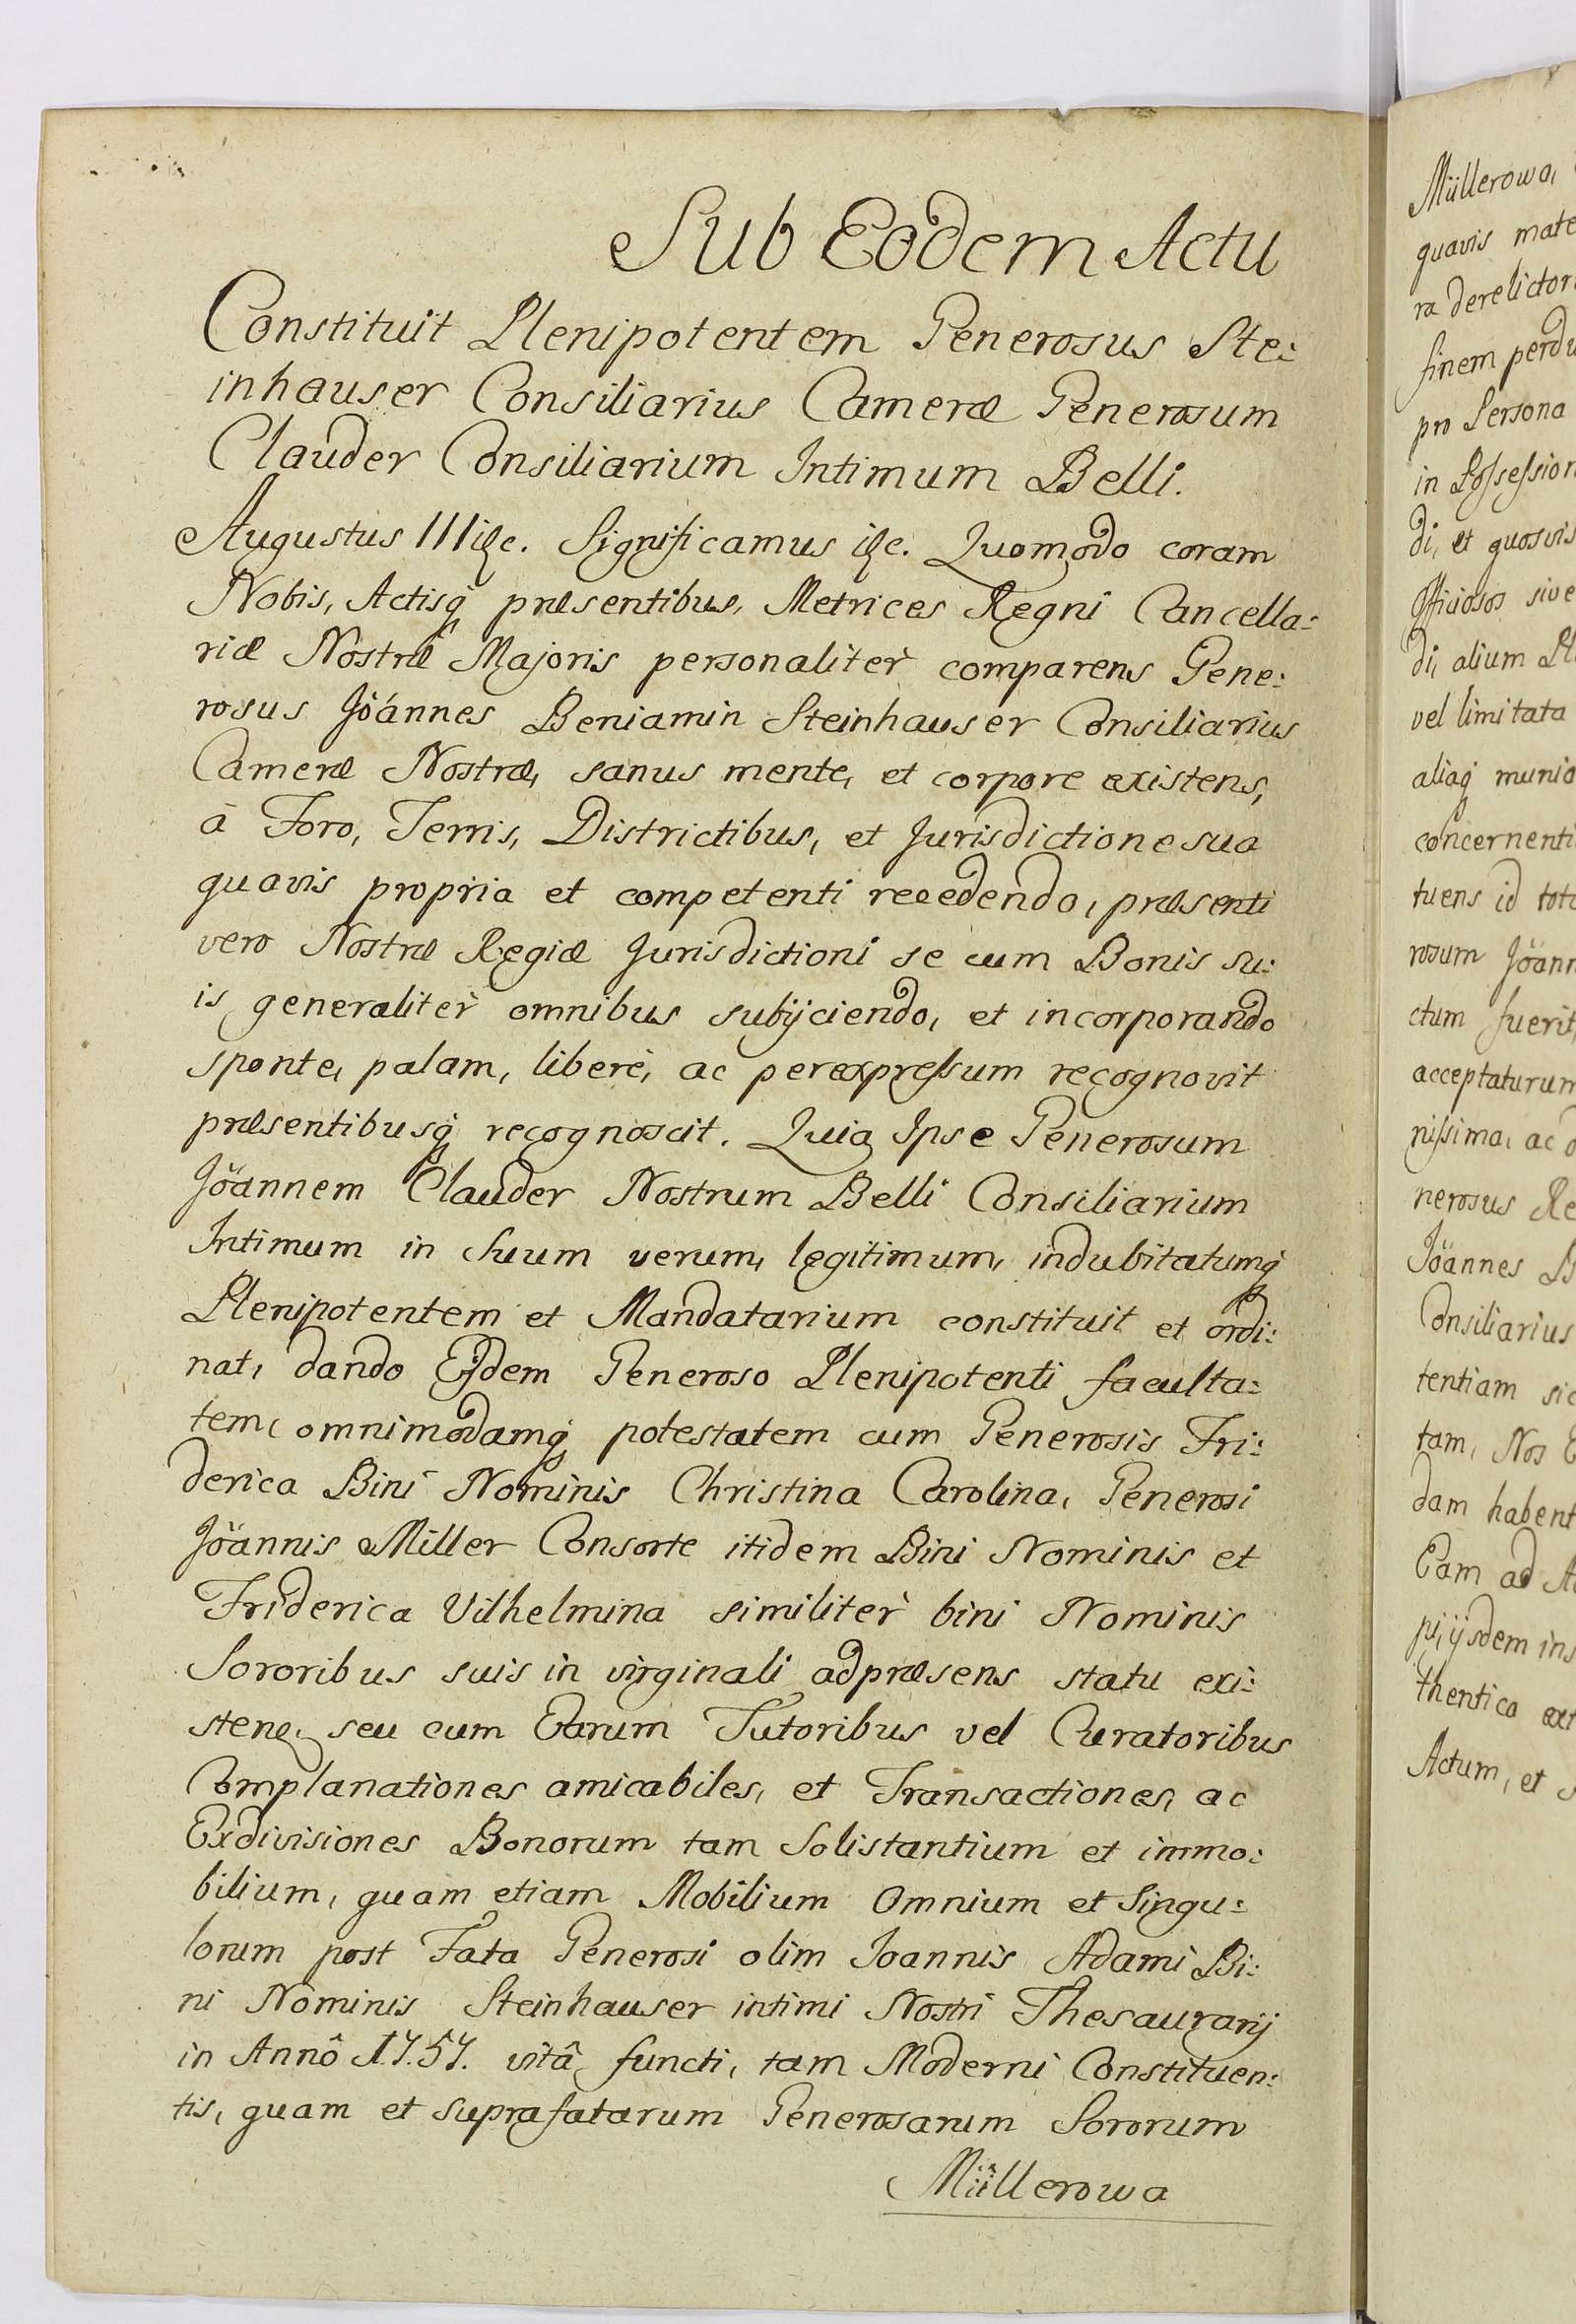 Sub Eodem Actu
Constituit Plenipotentem Generosus Ste:
inhauser Consiliarius Cameræ Generosum
Clauder Consiliarium Intimum Belli.
Augustus III etc. Significamus etc. Quomodo coram
Nobis, Actisq præsentibus, Metrices Regni Cancella:
riæ Nostræ Majoris personaliter comparens Gene:
rosus Jöannes Beniamin Steinhauser Consiliarius
Cameræ Nostræ, sanus mente, et corpore existens,
à Foro, Terris, Districtibus, et Jurisdictione sua
quavis propria et competenti recedendo, præsenti
vero Nostræ Regiæ Jurisdictioni se cum Bonis su:
is generaliter omnibus subijciendo, et incorporando
sponte, palam, liberè, ac perexpressum recognovit
præsentibusq recognoscit. Quia Ipse Generosum
Jöannem Clauder Nostrum Belli Consiliarium
Intimum in Suum verum, legitimum, indubitatumq
Plenipotentem et Mandatarium constituit et ordi:
nat, dando Ejdem Generoso Plenipotenti faculta:
tem, omnimodamq potestatem cum Generosis Fri:
derica Bini Nominis Christina Carolina, Generosi
Jöannis Miller Consorte itidem Bini Nominis et
Friderica Vilhelmina similiter bini Nominis
Sororibus suis in virginali adpræsens statu exi:
sten, seu cum Earum Tutoribus vel Curatoribus
Complanationes amicabiles, et Transactiones, ac
Exdivisiones Bonorum tam Solistantium et immo:
bilium, quam etiam Mobilium Omnium et Singu:
lorum post Fata Generosi olim Joannis Adami Bi:
ni Nominis Steinhauser intimi Nostri Thesaurarij
in Annô 1757. vitâ functi, tam Moderni Constituen:
tis, quam et suprafatarum Generosarum Sororum
Müllerowa
Müllerowa,
quavis mate
ra derelictor
finem perdu
pro Persona
in Possession
di, et quosvis
Officiosos sive
di, alium Pl
vel limitata
aliaq munia
concernenti
tuens id toto
rosum Jöann
ctum fuerit,
acceptaturum
nissima, ac o
nerosus Re
Jöannes B
Consiliarius
tentiam sic
tam, Nos E
dam habent
Eam ad A
pi, ijsdem ins
thentico ext
Actum, et s